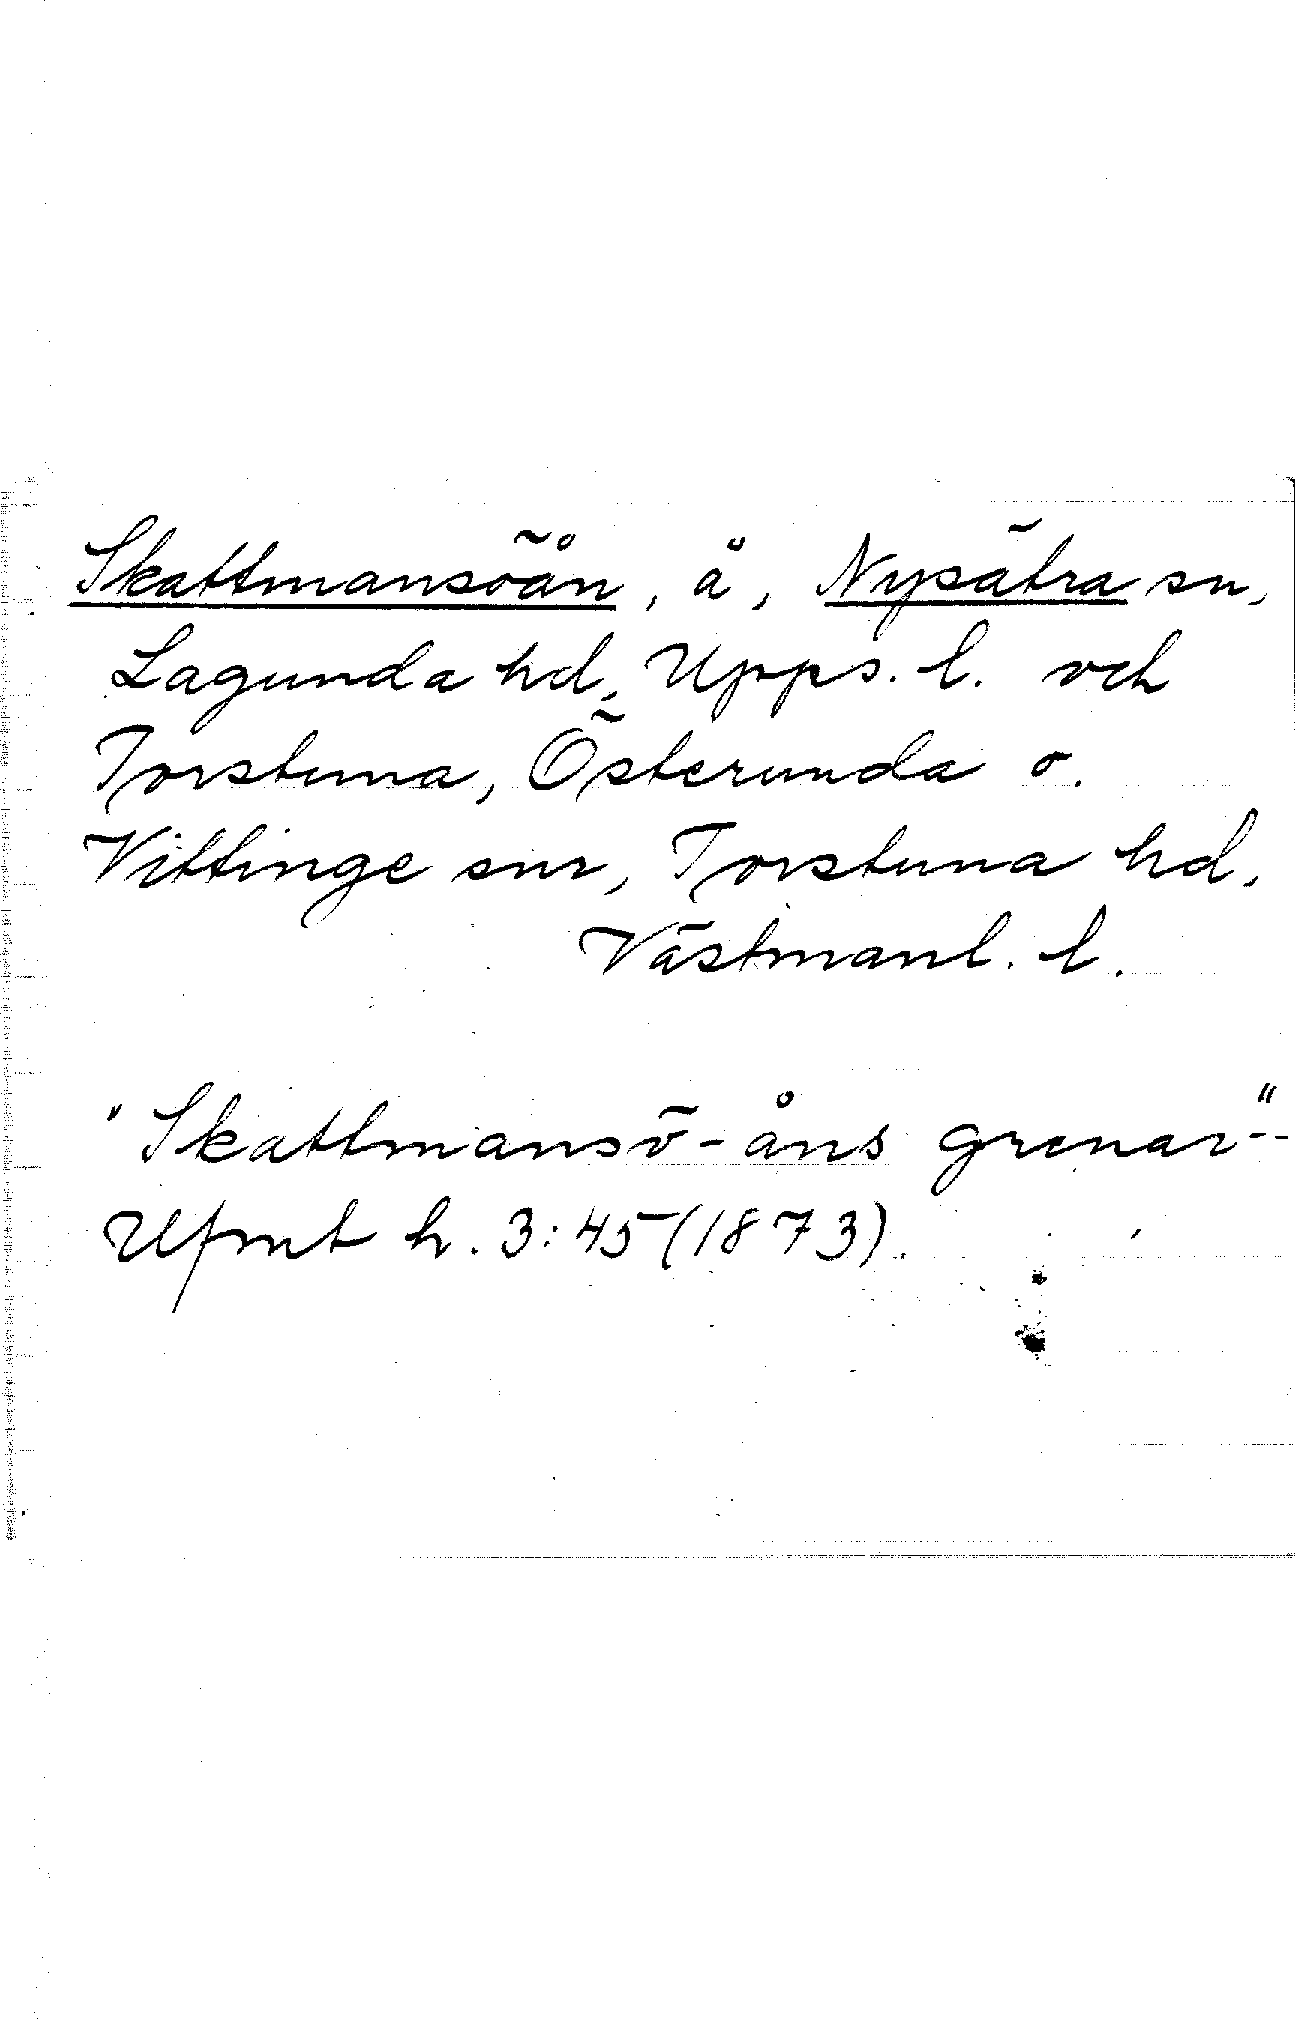 Skattmansöån, å, Nysätra sn,
Lagunda hd, Upps. l. och
Torstuna, Österunda o.
Vittinge snr, Torstuna hd,
Västmanl. l.
"Skattmansö-åns grenar--"
Ufmt h. 3:45 (1873).